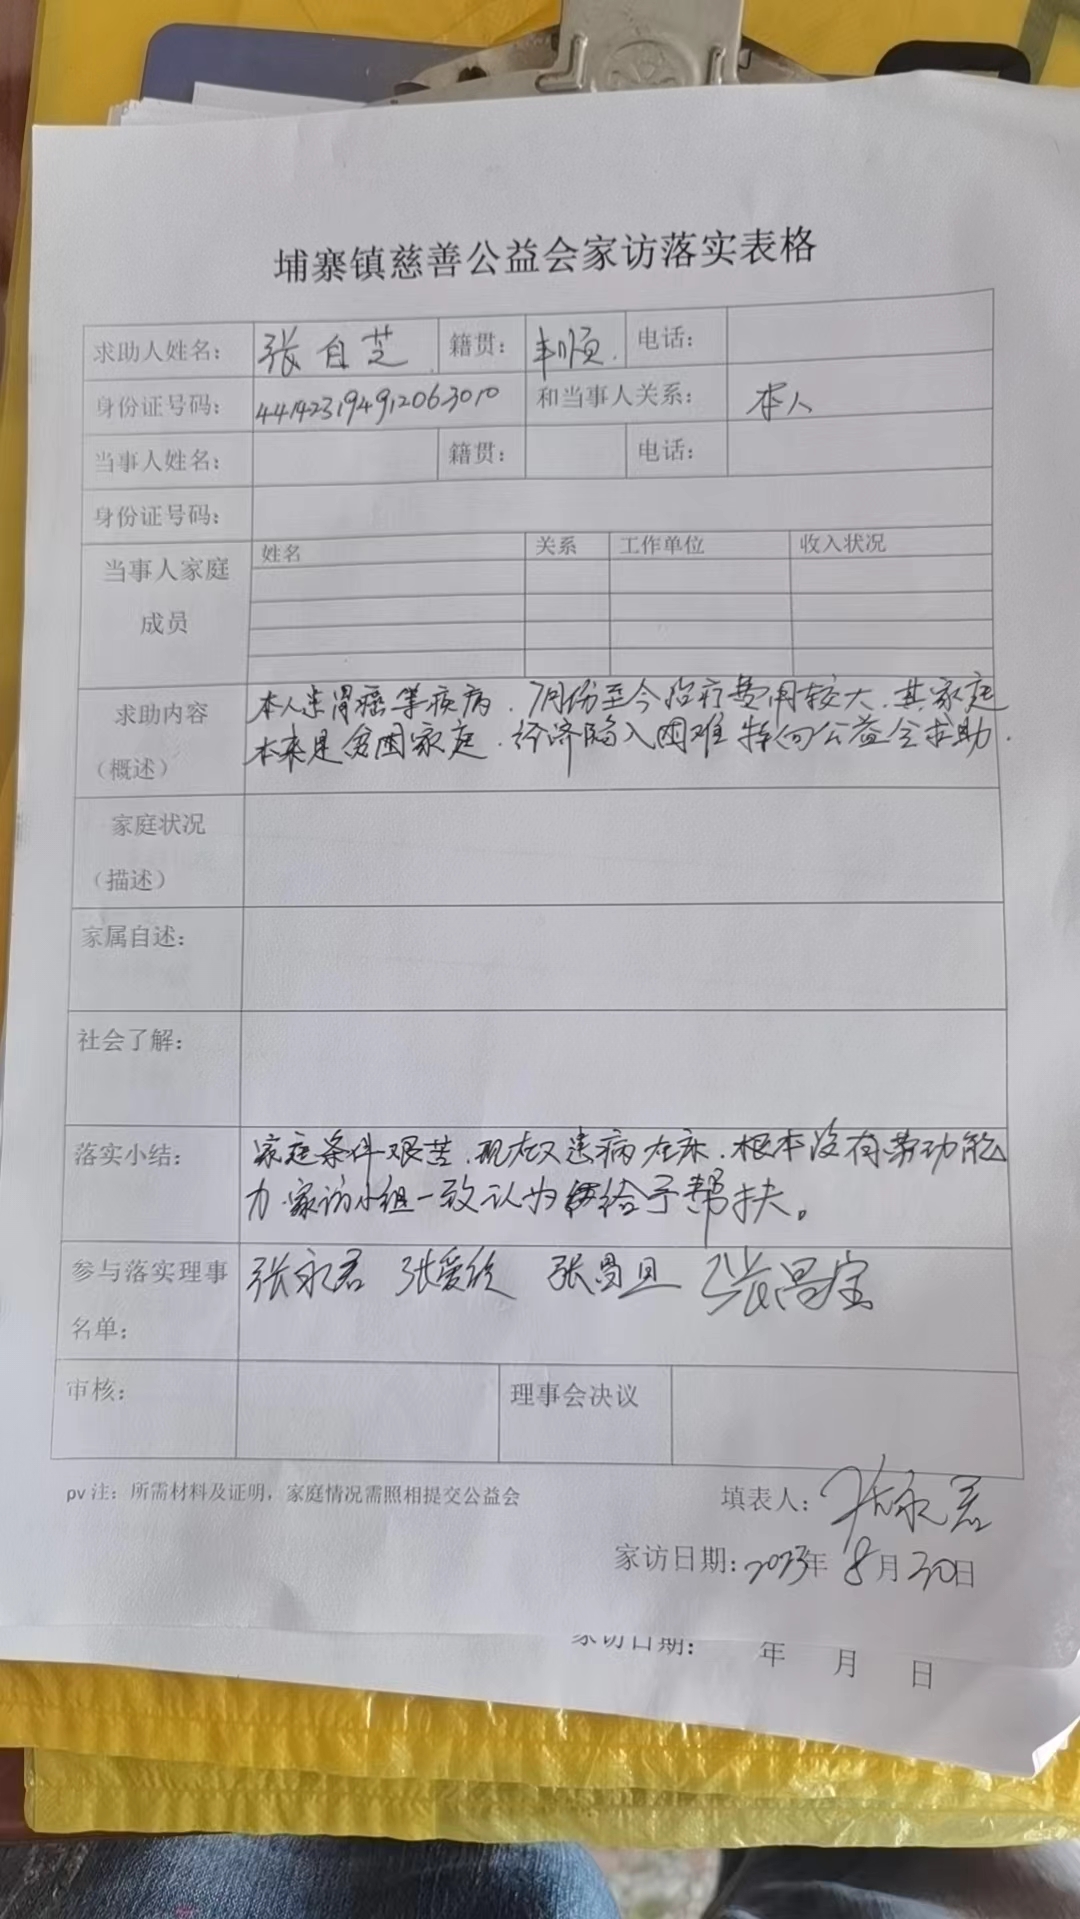 埔寨镇慈善公益会家访落实表格
求助人姓名： 张自芝 籍贯： 丰顺 电话：
身份证号码： 441423194912063010 和当事人关系： 本人
当事人姓名： 籍贯： 电话：
身份证号码：
当事人家庭成员 姓名 关系 工作单位 收入状况
求助内容 本人患胃癌等疾病，7月份至今治疗费用较大，其家庭
（概述） 本来是贫困家庭，经济陷入困难 特向公益会求助．
家庭状况
（描述）
家属自述：
社会了解：
落实小结： 家庭条件艰苦，现在又患病在床，根本没有劳动能
力．家访小组一致认为给予帮扶。
参与落实理事 张永君 张爱欣 张昌旦 张昌宝
名单：
审核： 理事会决议
pv 注：所需材料及证明，家庭情况需照相提交公益会
填表人：张永君
家访日期：2023年8月30日
家访日期： 年 月 日